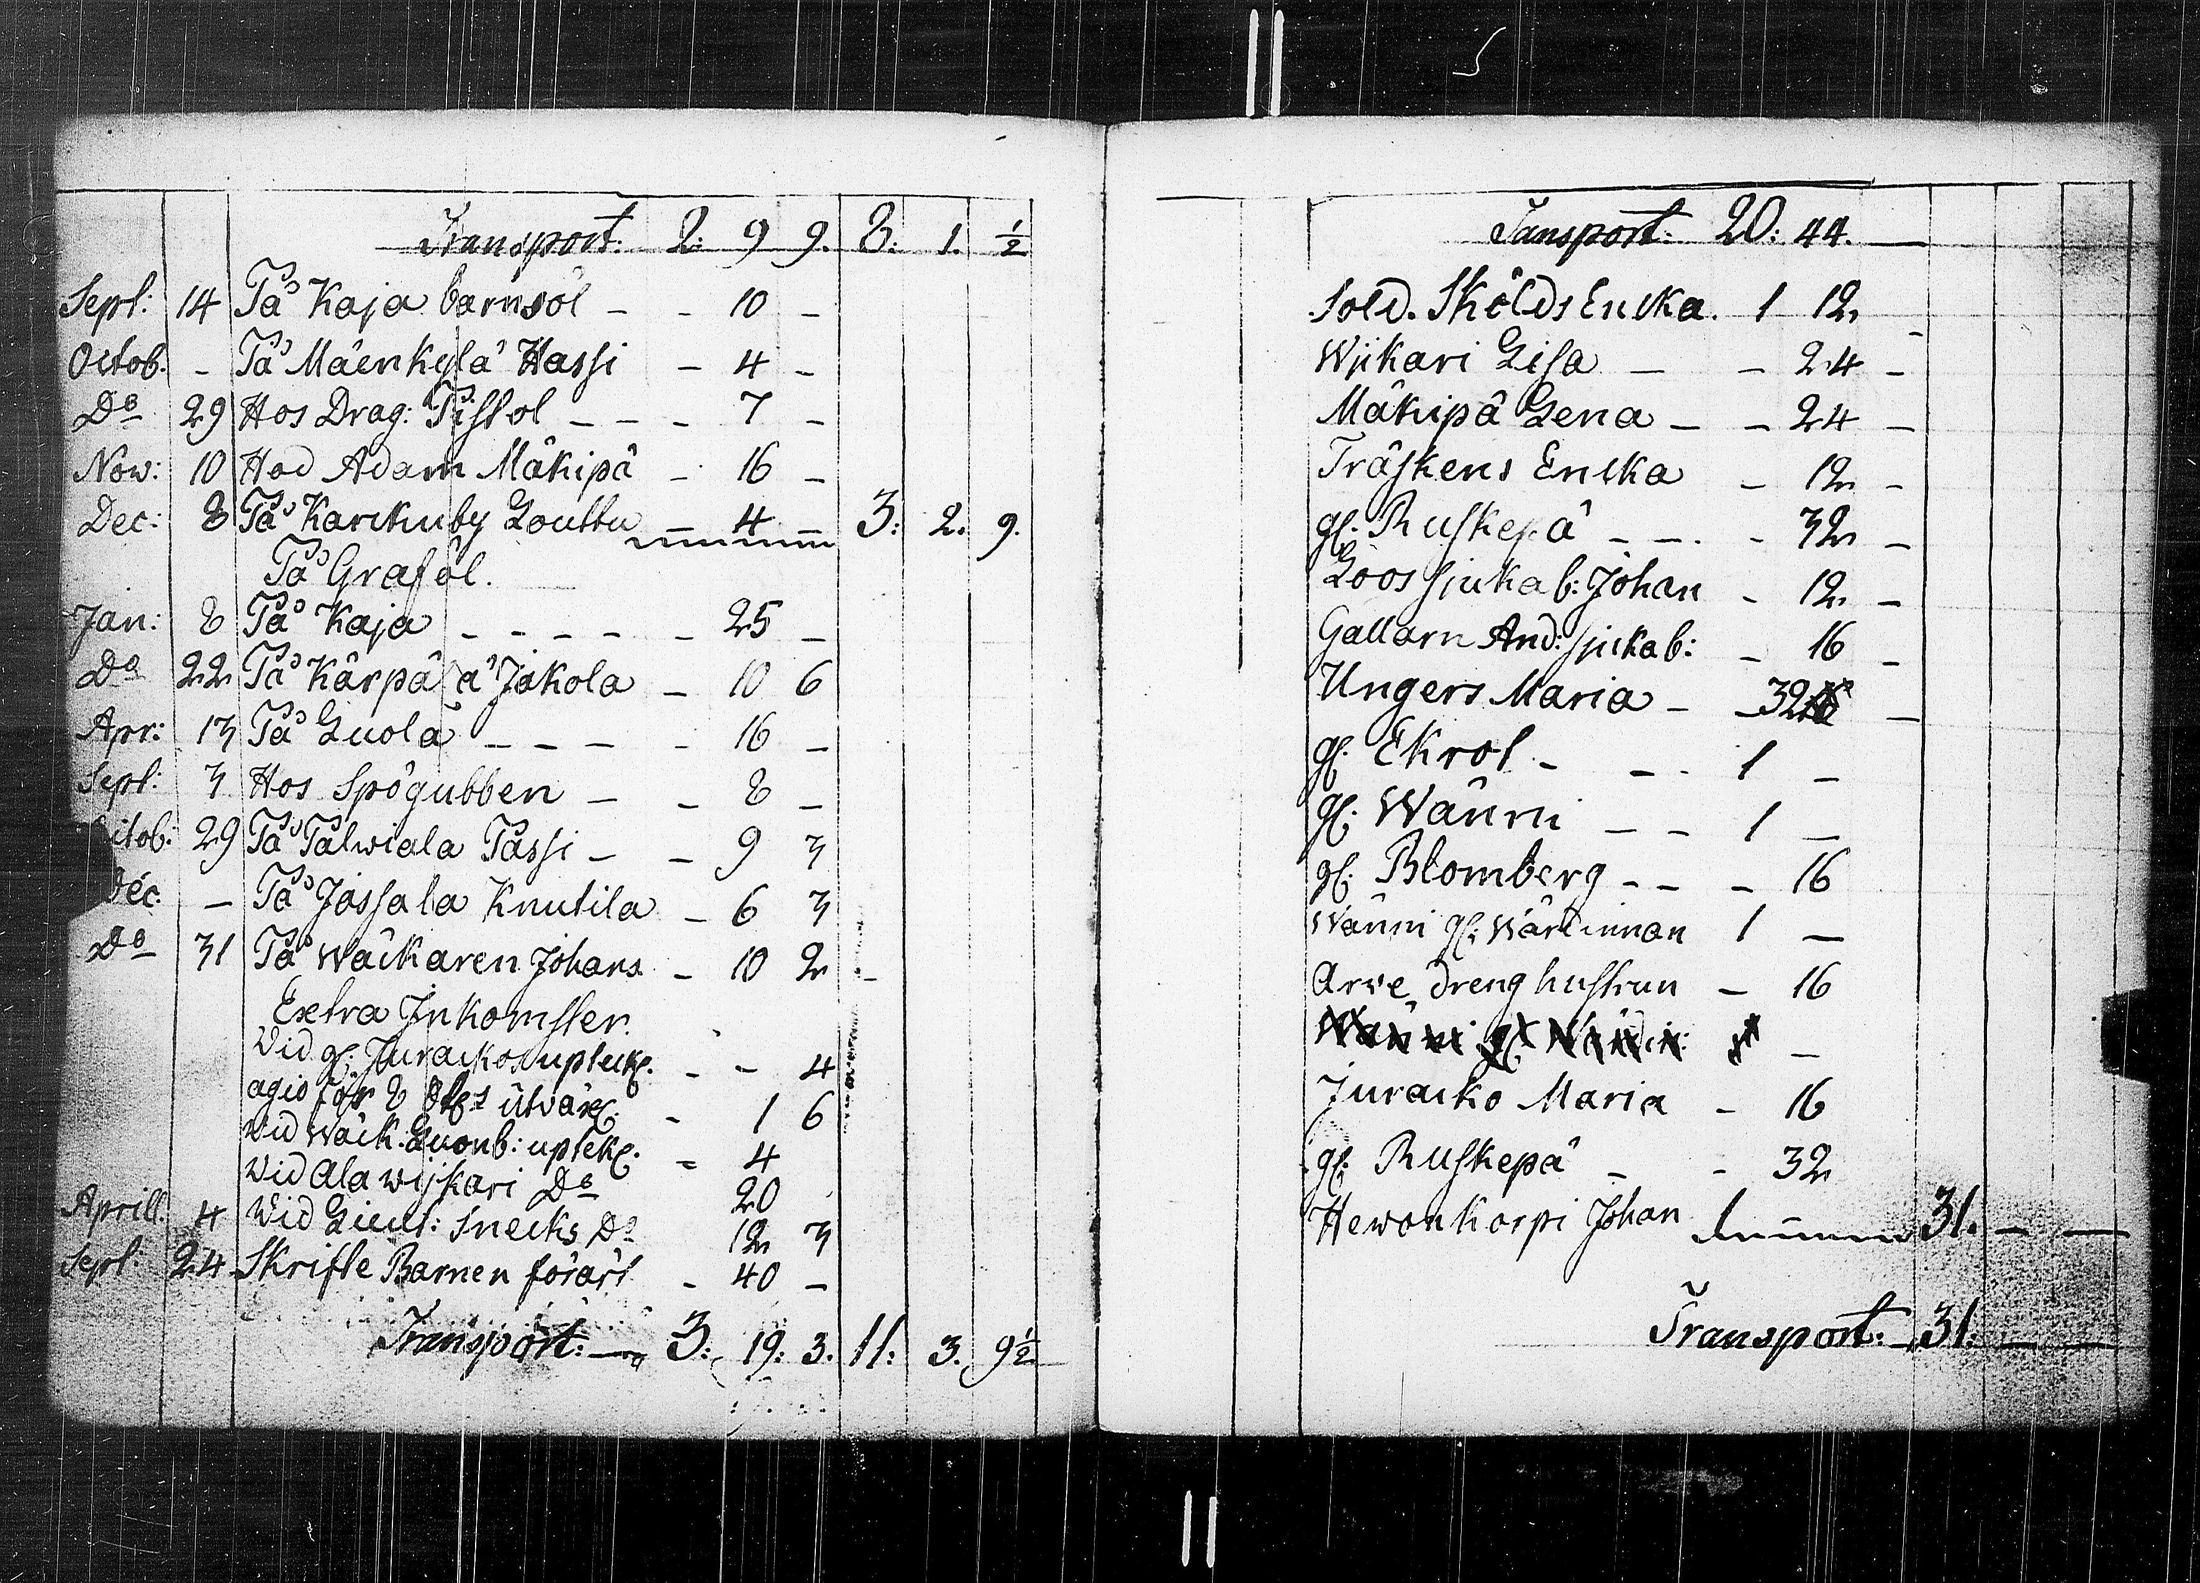 Transport: 2: 9 9. 8: 1. ½
Sept: 14 På Kaja barnsöl - - 10 -
Octob. - På Mäenkylä Hassi - 4 -
Do 29 Hos Drag: Pistol - - - 7 -
Nov: 10 Hod Adam Mäkipä - 16 -
Dec: 8 På Karkuby Louttu - 4 - 3: 2. 9.
På Graföl.
Jan: 8 På Kaja - - - - - 25 -
Do 22 På Kärpä å Jakola - 10 6
Apr: 13 På Luola - - - - 16 -
Sept: 3 Hos Spögubben - - 8 -
Octob: 29 På Palwiala Passi - - 9 3
Dec. - På Jossala Knutila - 6 3
Do 31 På Wäckaren Johans - 10 2 -
Extra Inkomster.
Vid gl: Juracko upteckl. - - 4
agio för 8 utväxl. - 1 6
Vid Wäck. Luonb: uptekl. - 4
Vid Ala wijkari Do 20
Aprill. 4 Vid Lieut: Snecks Do 12 3
Sept: 24 Skrifte Barnen föräst - 40 -
Transport: 3: 19: 3. 11: 3. 9½
Tansport: 20: 44.
Sold. Skölds Encka. 1 12 -
Wjikari Lisa - - 24 -
Mäkipä Lena - - 24 -
Träskens Encka - 12 -
gl. Ruskepä - - - 32 -
Loos sjuka b: Johan - 12 -
Gallarn And: sjuka b: - 16 -
Ungers Maria - - 32 -
gl. Ekrol - - - 1 -
gl. Wänni - - 1 -
gl. Blomberg - - - 16
Wänni gl. Wärdinnan 1 -
Arve dreng hustrun - 16
Juracko Maria - 16
gl. Ruskepä - - 32
Hewonkorpi Johan 1 31. - -
Transport: 31: - -